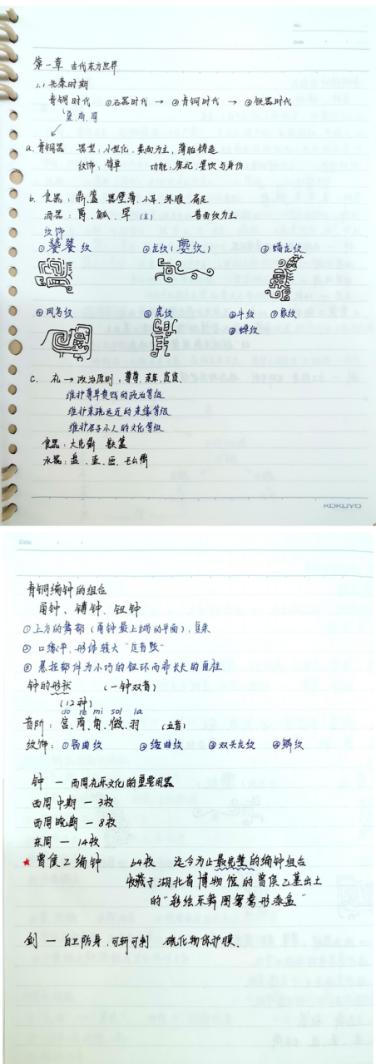 第一章 古代东方世界
1.1 先秦时期
青铜时代 ①石器时代 → ②青铜时代 → ③铁器时代
夏、商、周
a. 青铜器 器型：小型化、素面为主、薄胎铸造
纹饰：简单 功能：祭祀、宴饮与身份
b. 食器：鼎、簋
酒器：爵、觚、斝 兽面纹为主
纹饰
①饕餮纹 ②龙纹（夔纹） ③蟠龙纹
④凤鸟纹 ⑤虎纹 ⑥斗纹 ⑦象纹
⑧蝉纹
c. 礼 → 政治原则：尊尊、亲亲、贤贤
维护尊卑贵贱的政治等级
维护亲疏远近的亲缘等级
维护君子小人的文化等级
食器：大克鼎
水器：盘、
KOKUYO
青铜编钟的组合
甬钟、镈钟、钮钟
①上方的舞部（甬钟最上端的平面），直
②口缘平、形体较大
③悬挂部件为小巧的钮环而非长长的甬柱
钟的形状 （一钟双音）
do re mi sol la
音阶：宫、商、角、徵、羽 （五音）
② ③双头龙纹 ④鳞纹
钟 — 西周礼乐文化的重要用器
西周中期 — 3枚
西周晚期 — 8枚
东周 — 14枚
★ 曾侯乙编钟 64枚 迄今为止最完整的编钟组合
收藏于湖北省博物馆的曾侯乙墓出土
的“彩绘乐舞图鸳鸯形漆盒”
剑 — 自卫防身，可斩可刺 硫化物保护膜。